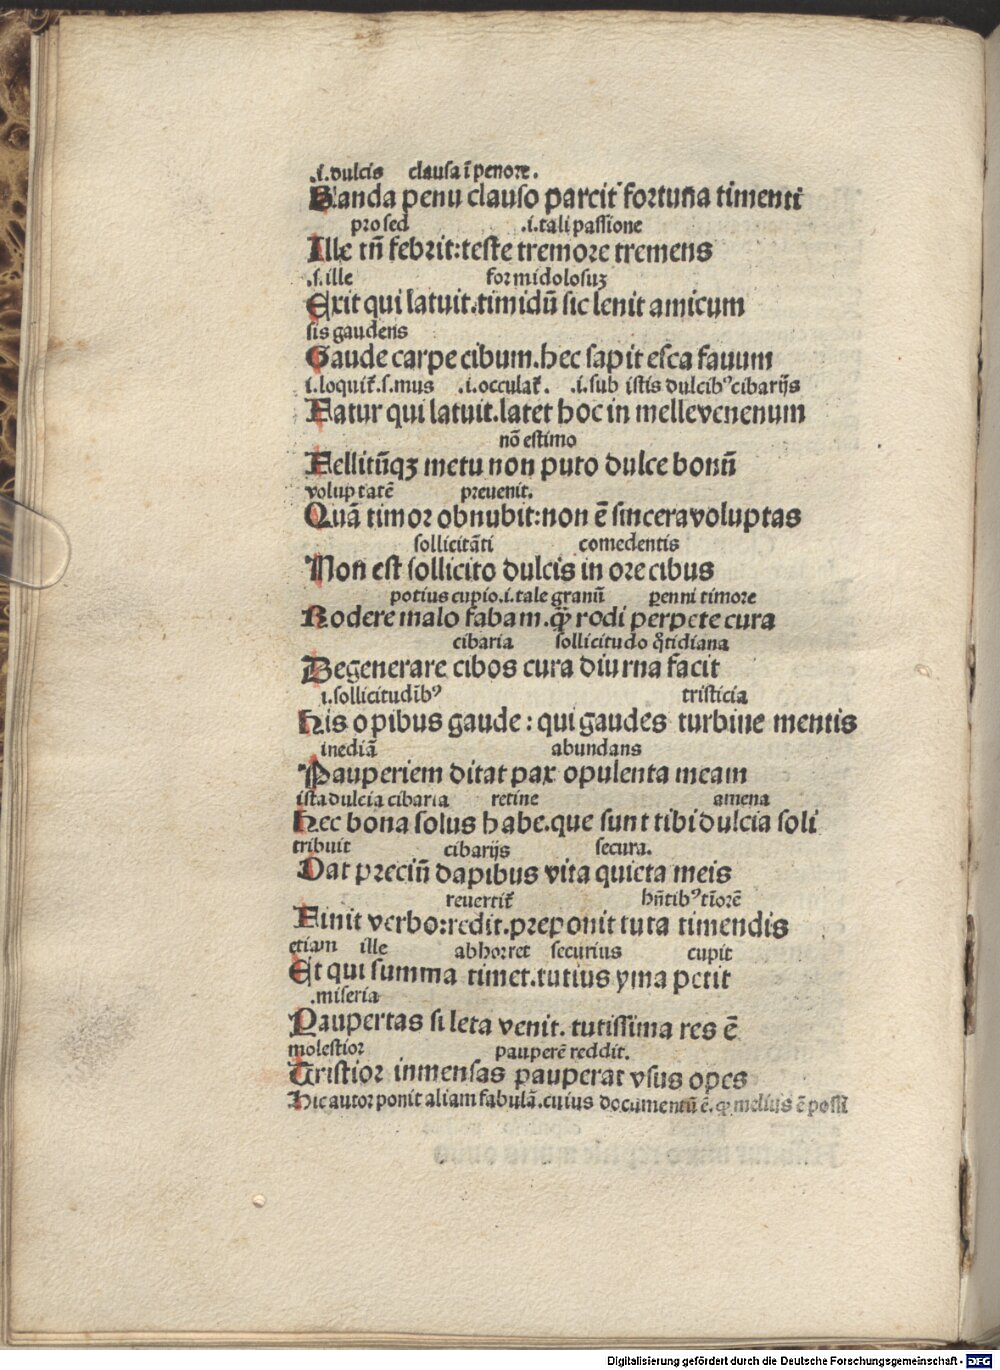 .i. dulcis clausa ī penore.
Blanda penu clauso parcit fortuna timenti
pro sed .i. tali passione
Ille tñ febrit: teste tremore tremens
.s. ille formidolosuꝫ
Exit qui latuit. timidū sic lenit amicum
sis gaudens
Gaude carpe cibum. hec sapit esca fauum
i. loquit̄. s. mus .i. occulat̄. .i. sub istis dulcibꝰ cibarijs
Fatur qui latuit. latet hoc in melle venenum
nō estimo
Fellitūqꝫ metu non puto dulce bonū
voluptatē preuenit.
Quā timor obnubit: non ē sincera voluptas
sollicitāti comedentis
Non est sollicito dulcis in ore cibus
potius cupio. i. tale granū ꝑenni timore
Rodere malo fabam. ꝙ̄ rodi perpete cura
cibaria sollicitudo q̄tidiana
Degenerare cibos cura diurna facit
i. sollicitudībꝰ tristicia
His opibus gaude: qui gaudes turbine mentis
inediā abundans
Pauperiem ditat pax opulenta meam
ista dulcia cibaria retine amena
Hec bona solus habe. que sunt tibi dulcia soli
tribuit cibarijs secura.
Dat preciū dapibus vita quieta meis
reuertit̄ hñtibꝰ tīorē
Finit verbo: redit. preponit tuta timendis
etiam ille abhorret securius cupit
Et qui summa timet. tutius yma petit
.miseria
Paupertas si leta venit. tutissima res ē
molestior pauperē reddit.
Tristior inmensas pauperat vsus opes
Hic autor ponit aliam fabulā. cuius documentū ē. ꝙ melius ē possi
Digitalisierung gefördert durch die Deutsche Forschungsgemeinschaft - DFG